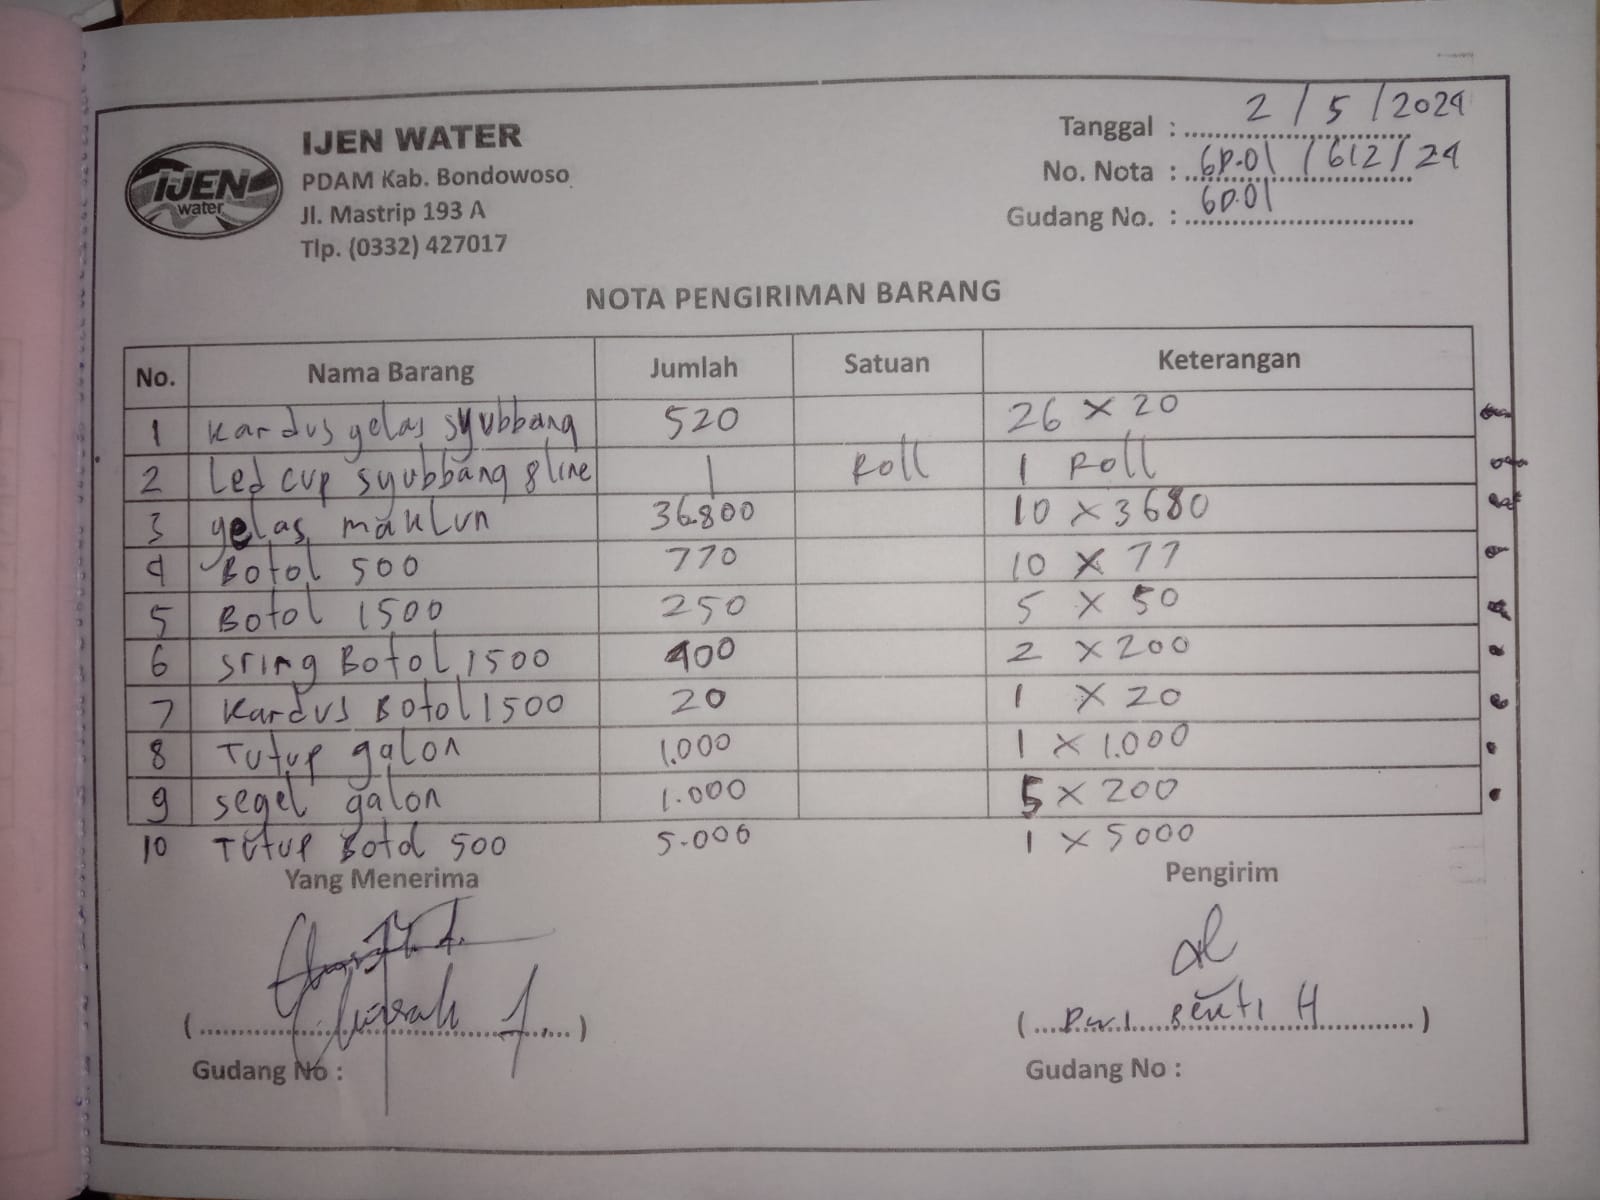 IJEN
water
IJEN WATER
PDAM Kab. Bondowoso
Jl. Mastrip 193 A
Tlp. (0332) 427017
Tanggal : 2 / 5 / 2024
No. Nota : GD.01 / 612 / 24
Gudang No. : GD.01
NOTA PENGIRIMAN BARANG
No. Nama Barang Jumlah Satuan Keterangan
1 Kardus gelas syubbang 520 26 x 20
2 Led cup syubbang 8 line 1 Roll 1 Roll
3 gelas maklun 36.800 10 x 3680
4 Botol 500 770 10 x 77
5 Botol 1500 250 5 x 50
6 sring Botol 1500 400 2 x 200
7 Kardus Botol 1500 20 1 x 20
8 Tutup galon 1.000 1 x 1.000
9 segel galon 1.000 5 x 200
10 Tutup Botol 500 5.000 1 x 5000
Yang Menerima Pengirim
(....................) (.... H ....................)
Gudang No : Gudang No :